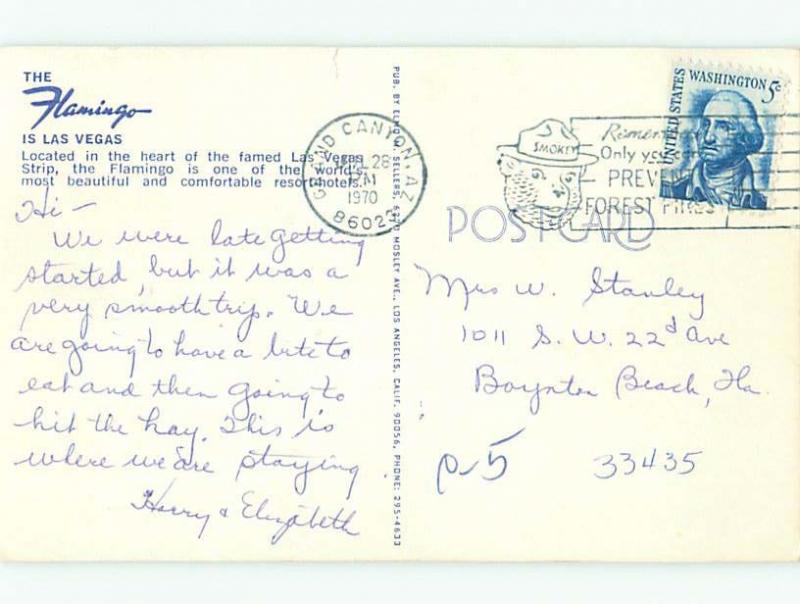 THE
Flamingo
IS LAS VEGAS
Located in the heart of the famed Las Vegas
Strip, the Flamingo is one of the world's
most beautiful and comfortable resort hotels.
Hi -
We were late getting
started, but it was a
very smooth trip. We
are going to have a bite to
eat and then going to
hit the hay. This is
where we are staying
Harry & Elizabeth
SELLERS, MOSLEY AVE., LOS ANGELES, CALIF. 90056, PHONE: 295-4633
GRAND CANYON, AZ
28
PM
1970
86023
SMOKEY
Only you can
PREVENT
FOREST FIRES
UNITED STATES
WASHINGTON 5c
POSTCARD
Mrs W. Stanley
1011 S. W. 22d Ave
Boynton Beach, Fla.
33435
p-5